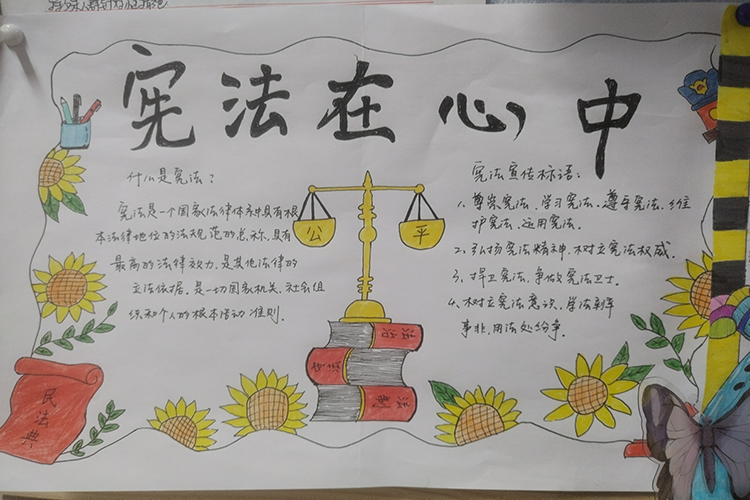 宪法在心中
什么是宪法？
宪法是一个国家法律体系中具有根
本法律地位的法规范的总称，具有
最高的法律效力，是其他法律的
立法依据，是一切国家机关、社会组
织和个人的根本活动准则。
公
平
宪法宣传标语：
1、尊崇宪法、学习宪法、遵守宪法、维
护宪法、运用宪法。
2、弘扬宪法精神，树立宪法权威。
3、捍卫宪法，争做宪法卫士。
4、树立宪法意识，学法辨
事非，用法处纷争。
法治
法制
民法典